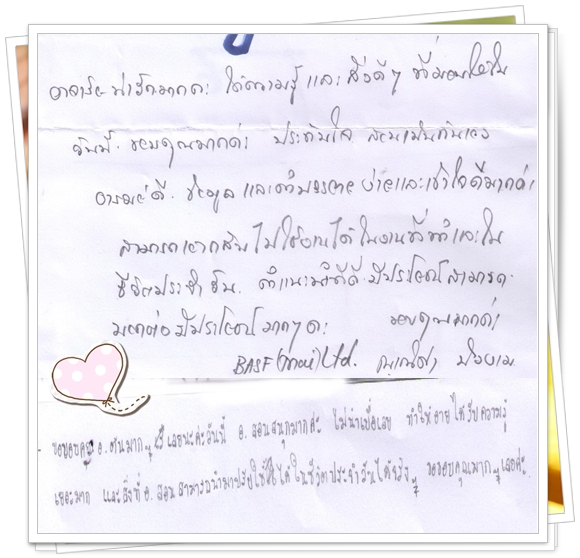 อาจารย์น่ารักมากค่ะ ได้ความรู้ และ สิ่งดีๆ ที่มอบให้ใน
วันนี้ ขอบคุณมากค่ะ ประทับใจ สอนเป็นกันเอง
อารมณ์ดี ข้อมูล และคำบรรยาย ง่ายและเข้าใจดีมากค่ะ
สามารถเอากลับไปใช้งานได้ในงานที่ทำและใน
ชีวิตประจำวัน คำแนะนำที่ดี มีประโยชน์สามารถ
บอกต่อมีประโยชน์มากๆค่ะ ขอบคุณมากค่ะ
BASF (Thai) Ltd.
ขอขอบคุณ อ. มากๆ เลยนะคะวันนี้ อ. สอนสนุกมากค่ะ ไม่น่าเบื่อเลย ทำให้ได้รับความรู้
เยอะมาก และสิ่งที่ อ. สอนสามารถนำมาปรับใช้ได้ในชีวิตประจำวันได้จริงๆ ขอขอบคุณมากๆ เลยค่ะ